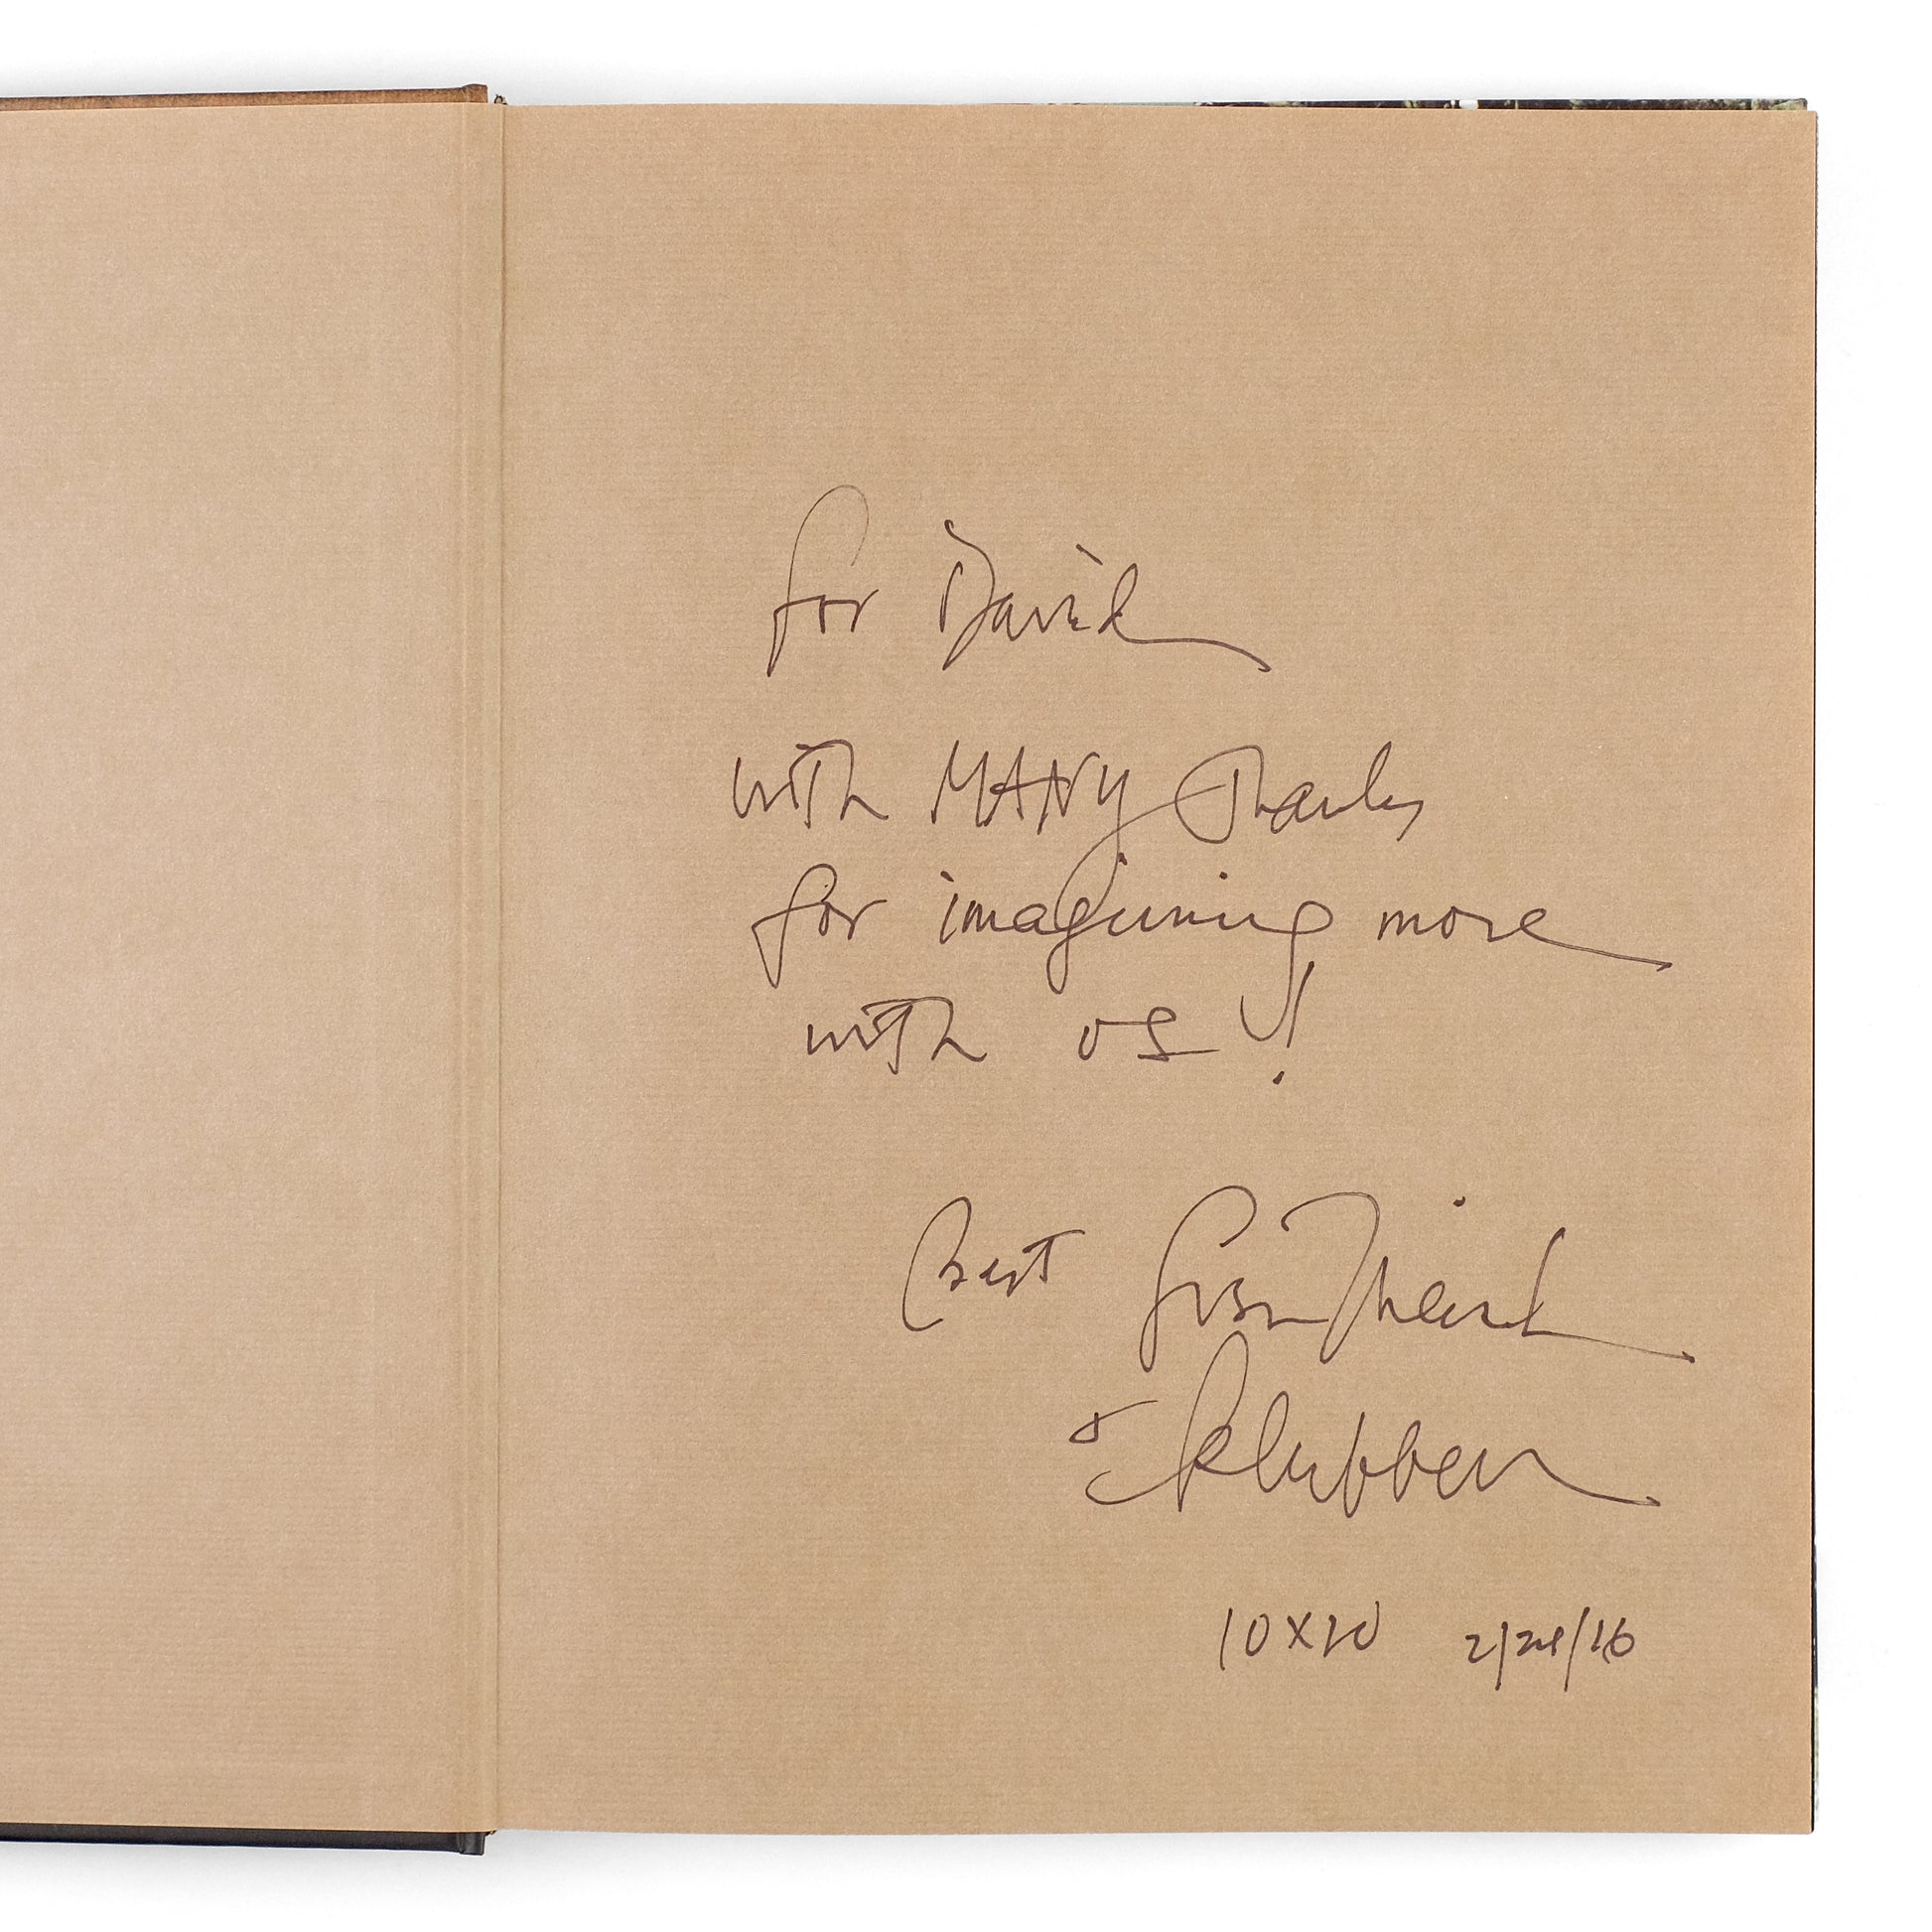 for David
with MANY Thanks
for imagining more
with us!
Best Susan Meisel
&
10 X 10 2/28/16